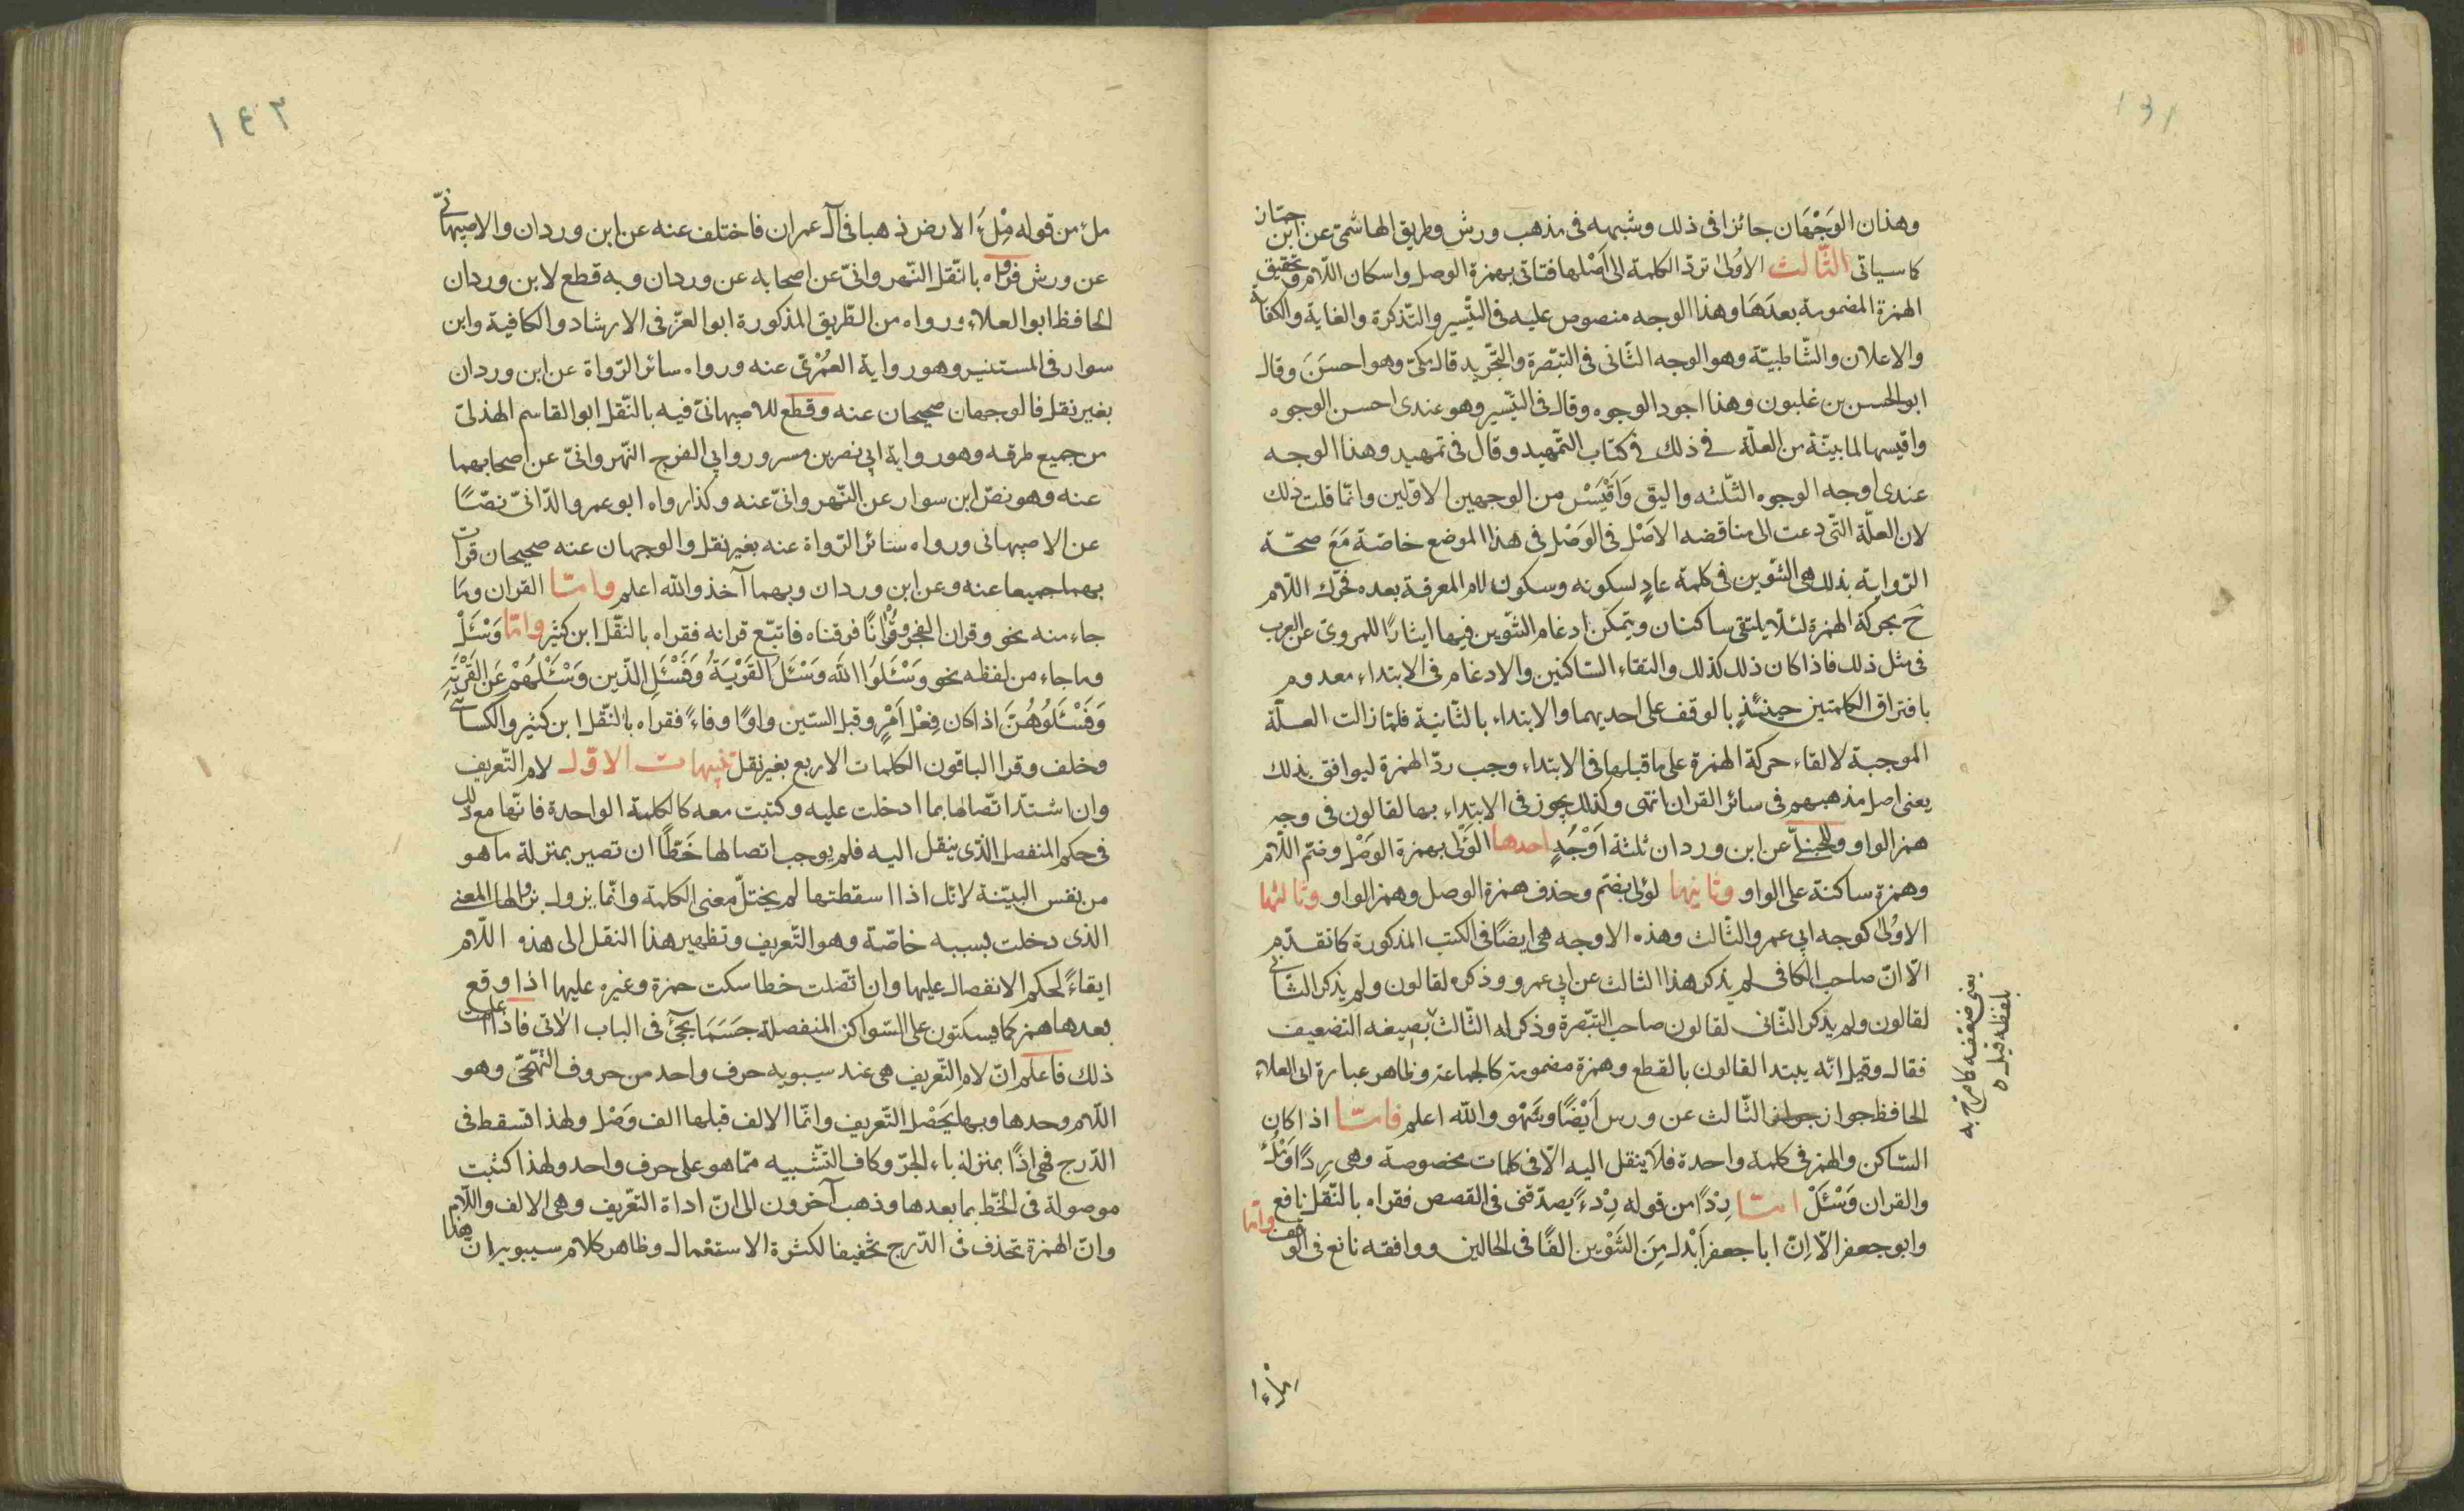 ١٤١
وهذان الوَجْهَان جائزا فى ذلك وشبهه فى مذهب ورش وطريق الهاشمىّ عن ابن جمّاز
كما سياتى الثّالث الاوُلىٰ تردّ الكلمة الى اَصْلها فتاتى بهمزة الوصل واسكان اللّام وتحقيق
الهمزة المضمومة بعدَهَا وهذا الوجه منصوص عليه فى التّيسير والتّذكرة والغاية والكفاية
والاعلان والشّاطبيّة وهو الوجه الثّانى فى التبّصرة والتجّريد قال مكىّ وهو احسَنَ وقال
ابو الحسن بن غلبون وهذا اجود الوجوه وقال فى التّيسير وهو عندى احسن الوجوه
واقيسها لما بيّنة من العلّة فى ذلك فى كتاب التّمهيد وقال فى تمهيد وهذا الوجه
عندى اوجه الوجوه الثّلثه واليق وَاَقْيَسْ من الوجهين الاوّلين وانّما قلت ذلك
لان العلّة التّى دعت الى مناقضه الاصْل فى الوَصْل فى هذا الموضع خاصّة مَعَ صحّة
الرّواية بذلك هى التّنوين فى كلمة عادٍ لسكونه وسكون لام المعرفة بعده فحّرك اللّام
حَ بحركة الهمزة لئلّا يلتقى ساكنان ويتمكّن ادغام التّنوين فيها ايثارًا للمروىّ عن العرب
فى مثل ذلك فاذا كان ذلك كذلك والتقاء السّاكنين والادغام فى الابتداء معدوم
بافتراق الكلمتين حينئذٍ بالوقف على احديهما والابتداء بالثّانية فلمّا زالت العلّة
الموجبة لالقاء حركة الهمزة على ما قبلها فى الابتداء وجب ردّ الهمزة ليوافق بذلك
يعنى اصل مذهبهم فى سائر القران انتهى وكذلك يجوز فى الابتداء بها لقالون فى وجه
همز الواو وللحنبلّى عن ابن وردان ثلثة اَوْجُهٍ احدها الوُلىٰ بهمزة الوَصْل وضمّ اللّام
وهمزة ساكنة على الواو وثانيها لؤلى بضمّ وحذف همزة الوصل وهمز الواو وثالثها
الاوُلىٰ كوجه ابى عمرو الثّالث وهذه الاوجه هى ايضًا فى الكتب المذكورة كما تقدّم
الّا انّ صاحب الكافى لم يذكر هذا الثالث عن ابى عمرو وذكره لقالون ولم يذكر الثّانى
لقالون ولم يذكر الثّانى لقالون صاحب التبّصرة وذكر له الثّالث بصيغه التضعيف
فقال وقيل انّه يبتدا لقالون بالقطع وهمزة مضمومة كالجماعة وظاهر عبارة ابى العلاء
الحافظ جواز الثّالث عن ورس اَيْضًا وسَهْو والله اعلم فامّا اذا كان
السّاكن والهمز فى كلمة واحدة فلا ينقل اليه الّا فى كلمات مخصوصة وهى رِدًا وَمِلْءُ
والقران وَسْئَلْ امّا رِدْاً من قوله رِدْءً يصدّقنى فى القصص فقراه بالنّقل نافع
وابو جعفر الّا انّ ابا جعفر اَبْدل مِنَ التَنْوين الفًا فى الحالين ووافقه نافع فى الوقف وامّا
يعنى ضعّفه كما صرّح به
بلفظه قيل
١٤٢
ملء من قوله مِلْءُ الارض ذهبا فى آل عمران فاختلف عنه عن ابن وردان والاصبهانىّ
عن ورش فرواه بالنّقل النّهروانىّ عن اصحابه عن وردان وبه قطع لابن وردان
الحافظ ابو العلاء ورواه من الطّريق المذكورة ابو العزّ فى الارشاد والكافية وابن
سوار فى المستنير وهو رواية العُمْرىّ عنه ورواه سائر الرّواة عن ابن وردان
بغير نقل فالوجهان صحيحان عنه وقطع للاصبهانىّ فيه بالنّقل ابو القاسم الهذلىّ
من جميع طرقه وهو رواية ابى نصر بن مسرور وابى الفرج النّهروانىّ عن اصحابهما
عنه وهو نصّ ابن سوار عن النّهروانىّ عنه وكذا رواه ابو عمرو الدّانىّ نصًّا
عن الاصبهانى ورواه سائر الرّواة عنه بغير نقل والوجهان عنه صحيحان قرات
بهما جميعا عنه وعن ابن وردان وبهما آخذ والله اعلم وامّا القران وما
جاء منه نحو وقران الفجر وقُرْاٰنًا فرقناه فاتبّع قرانه فقراه بالنّقل ابن كثير وامّا وَسْئَلْ
وما جاء من لفظه نحو وَسْئَلُوا اللّٰه وَسْئَلُ القَرْيَةُ وَفَسْئَلِ الذّين وَسْئَلْهُمْ عَنِ القَرْيَةِ
وَفَسْئَلُوُهُنَّ اذا كان فِعْل اَمْرٍ وقبل السّين واوًا وفاءً فقراه بالنّقل ابن كثير والكسائىّ
وخلف وقرا الباقون الكلمات الاربع بغير نقل تنبيهات الاوّل لام التّعريف
وان اشتدّ اتّصالها بما ادخلت عليه وكتبت معه كالكلمة الواحدة فانّها مع ذلك
فى حكم المنفصل الذّى ينقل اليه فلم يوجب اتصالها خَطًّا ان تصير بمنزلة ما هو
من نفس البيّنة لانّك اذا اسقطتها لم يختلّ معنى الكلمة وانّما يزول بزوالها المعنى
الذى دخلت بسببه خاصّة وهو التّعريف ونظهير هذا النقل الى هذه اللّام
ابقاءً لحكم الانفصال عليها وان اتّصلت خطا سكت حمزة وغيره عليها اذا وقع
بعدها همز كما يسكتون على السّواكن المنفصلة حَسَمَا يجئ فى الباب الاتى فاذا علمت
ذلك فاعلم انّ لام التّعريف هى عند سيبويه حرف واحد من حروف التّهجّى وهو
اللّام وحدها وبها يَحْصُل التّعريف وانّما الالف قبلها الف وَصْل ولهذا تسقط فى
الدّرج فهى اذًا بمنزلة باء الجرّ وكاف التّشبيه ممّا هو على حرف واحد ولهذا كتبت
موصولة فى الخّط بما بعدها وذهب آخرون الى انّ اداة التعّريف وهى الالف واللّام
وانّ الهمزة تحذف فى الدّرج تخفيفا لكثرة الاستعمال وظاهر كلام سيبويه انّ هذا